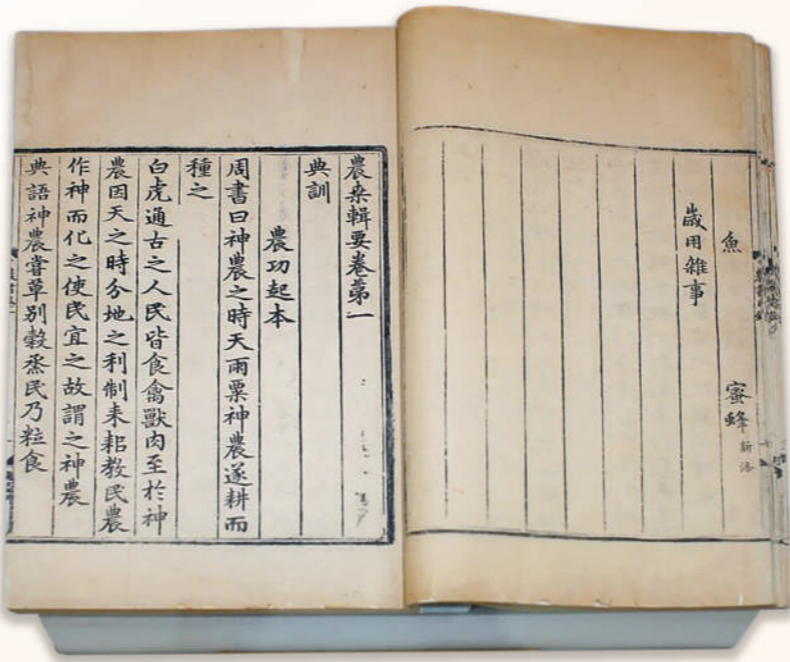 魚　蜜蜂 新添
歲用雜事
農桒輯要卷第一
典訓
農功起本
周書曰神農之時天雨粟神農遂耕而
種之
白虎通古之人民皆食禽獸肉至於神
農因天之時分地之利制耒耜教民農
作神而化之使民宜之故謂之神農
典語神農嘗草別穀烝民乃粒食